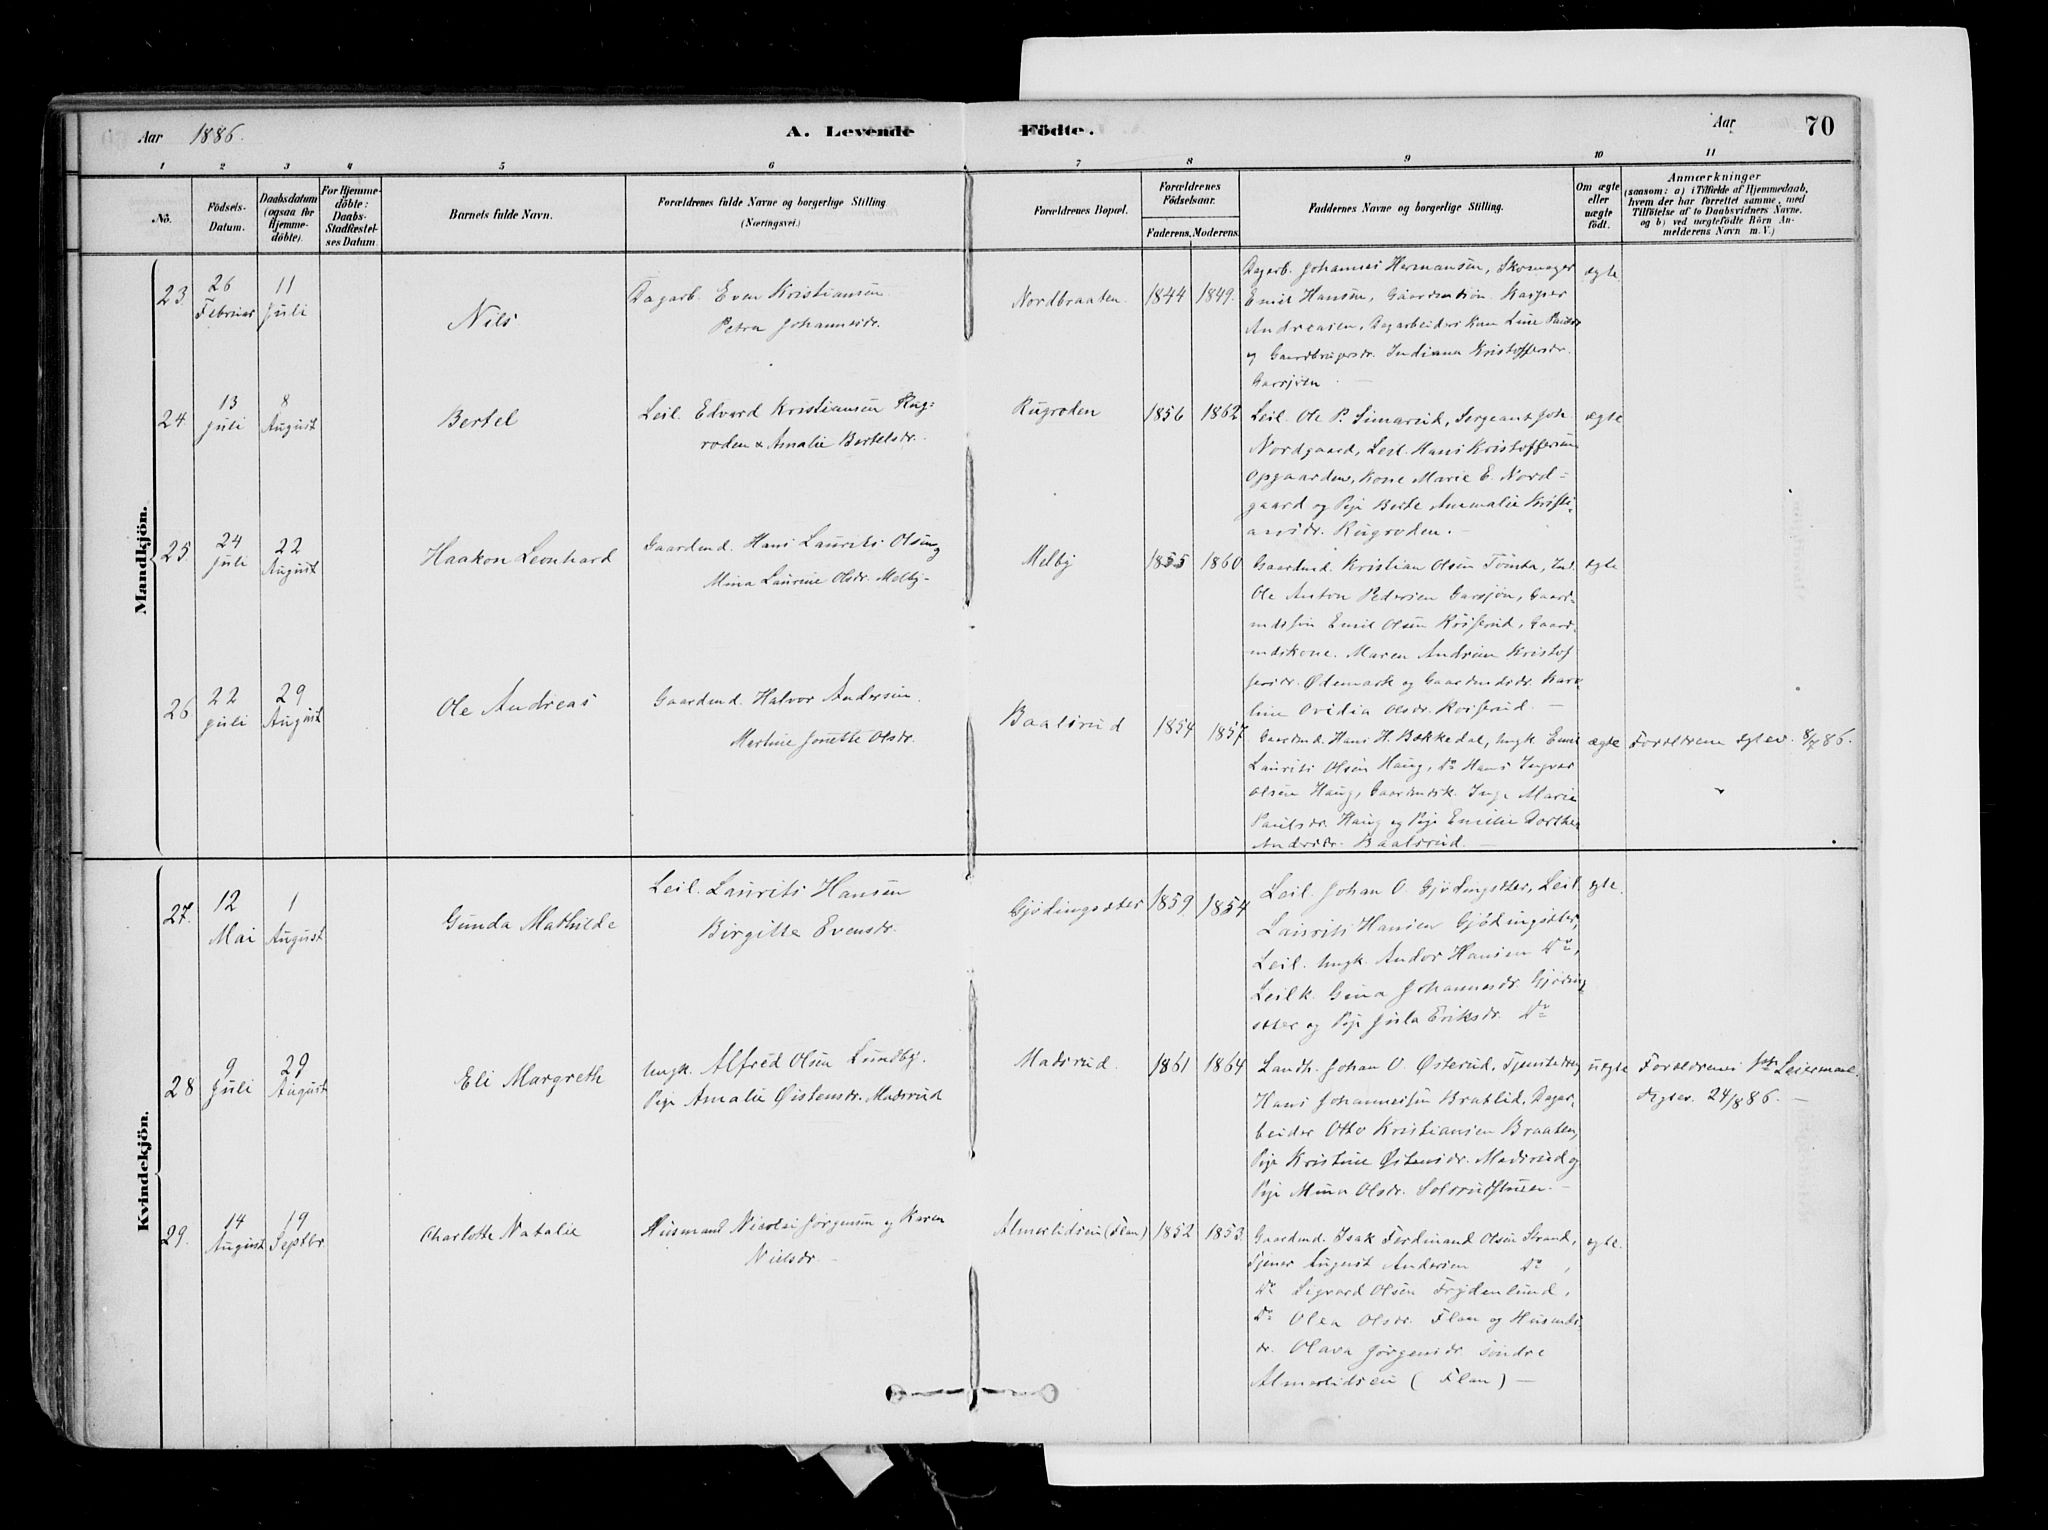 Aar 1886.
A. Levende Födte.
Aar 70
1 2 3 4 5 6 7 8 9 10 11
No.
Födsels-
Datum.
Daabsdatum
(ogsaa for
Hjemme-
döbte).
For Hjemme-
döbte:
Daabs-
Stadfæstel-
ses Datum.
Barnets fulde Navn.
Forældrenes fulde Navne og borgerlige Stilling
(Næringsvei.)
Forældrenes Bopæl.
Forældrenes
Födselsaar.
Faderens. Moderens.
Faddernes Navne og borgerlige Stilling.
Om ægte
eller
uægte
födt.
Anmærkninger
(saasom: a) i Tilfælde af Hjemmedaab,
hvem der har forrettet samme, med
Tilföielse af to Daabsvidners Navne.
og b) ved uægtefödte Börn An-
melderens Navn m. V.)
Mandkjön.
23.
26
Februar
11
Juli
Nils
Dagarb. Even Kristiansen
Petra Johannesdr.
Nordbraaten. 1844 1849.
Dagarb. Johannes Hermansen, Skomager
Emil Hansen, Gaardmdsøn Kasper
Andreasen, Dagarbeiders Kone Line
og Gaardbrugersdr. Indiana Kristoffersdr.
Garsjøen. —
ægte
24.
13
Juli
8
August
Bertel
Leil. Edvard Kristiansen Rug-
roden & Amalie Bertelsdr.
Rugroden 1856 1862
Leil. Ole P. Simarud, Sergeant Joh.
Nordgaard, Leil. Hans Kristoffersen
Opgaarden, Kone Marie E. Nord-
gaard og Pige Berte Annmalie Kristi-
ansdr. Rugroden. —
ægte
25.
24
Juli
22
August
Haakon Leonhard
Gaardmd. Hans Laurits Olsen og
Mina Laurine Olsdr. Melby-
Melby 1855 1860
Gaardmd. Kristian Olsen Tomta, Ind.
Ole Anton Pedersen Garsjøn, Gaard-
mdssøn Emil Olsen Kroserud, Gaard-
mdskone. Maren Andrine Kristof-
fersdr. Ødemark og Gaardmdsdr. Karo-
line Ovidia Olsdr. Kroserud. —
ægte
26.
22
Juli
29
August
Ole Andreas
Gaardmd. Halvor Andersen
Martine Jonette Olsdr.
Baalsrud 1854 1857
Gaardmd. Hans H. Bækkedal, Ungk. Emil
Laurits Olsen Haug, Do Hans Ingvar
Olsen Haug, Gaardmdsk. Inge Marie
Paulsdr. Haug og Pige Emilie Dorthea
Andrsdr. Baalsrud. —
ægte
Forældrene ægtev. 86.
Kvindekjön.
27.
12
Mai
1
August
Gunda Mathilde
Leil. Laurits Hansen
Birgitte Evensdr.
Gjødingsæter 1859 1854
Leil. Johan O. Gjødingsæter, Leil.
Laurits Hansen Gjødingsæter,
Leil. Ungk. Andor Hansen Do,
Leilk. Gina Johannesdr. Gjøding-
sæter og Pige Jula Eriksdr. Do
ægte.
28
9
Juli
29
August
Eli Margreth
Ungk. Alfred Olsen Lundby.
Pige Amalie Øistensdr. Madsrud
Madsrud. 1861 1864
Landh. Johan O. Østerud, Tjenstedreng
Hans Johannessen Bratlid, Dagar-
beider Otto Kristiansen Braaten,
Pige Kristine Østensdr. Madsrud og
Pige Mina Olsdr. Solsrudstuen. —
uægte
Forældrenes 1ste Leiermaal.
Ægtev. 24/8 86. —
29.
14
August
19
Septbr.
Charlotte Natalie
Husmand Nicolai Jørgensen og Karen
Nielsdr.
Almerlidseie (Flan) 1852 1853.
Gaardmd. Isak Ferdinand Olsen Strand,
Tjener August Andersen Do,
Do Sigvard Olsen Frydenlund,
Do Olea Olsdr. Flan og Husmds-
dr. Olava Jørgensdr. søndre
Almerlidseie ( Flan ) —
ægte.